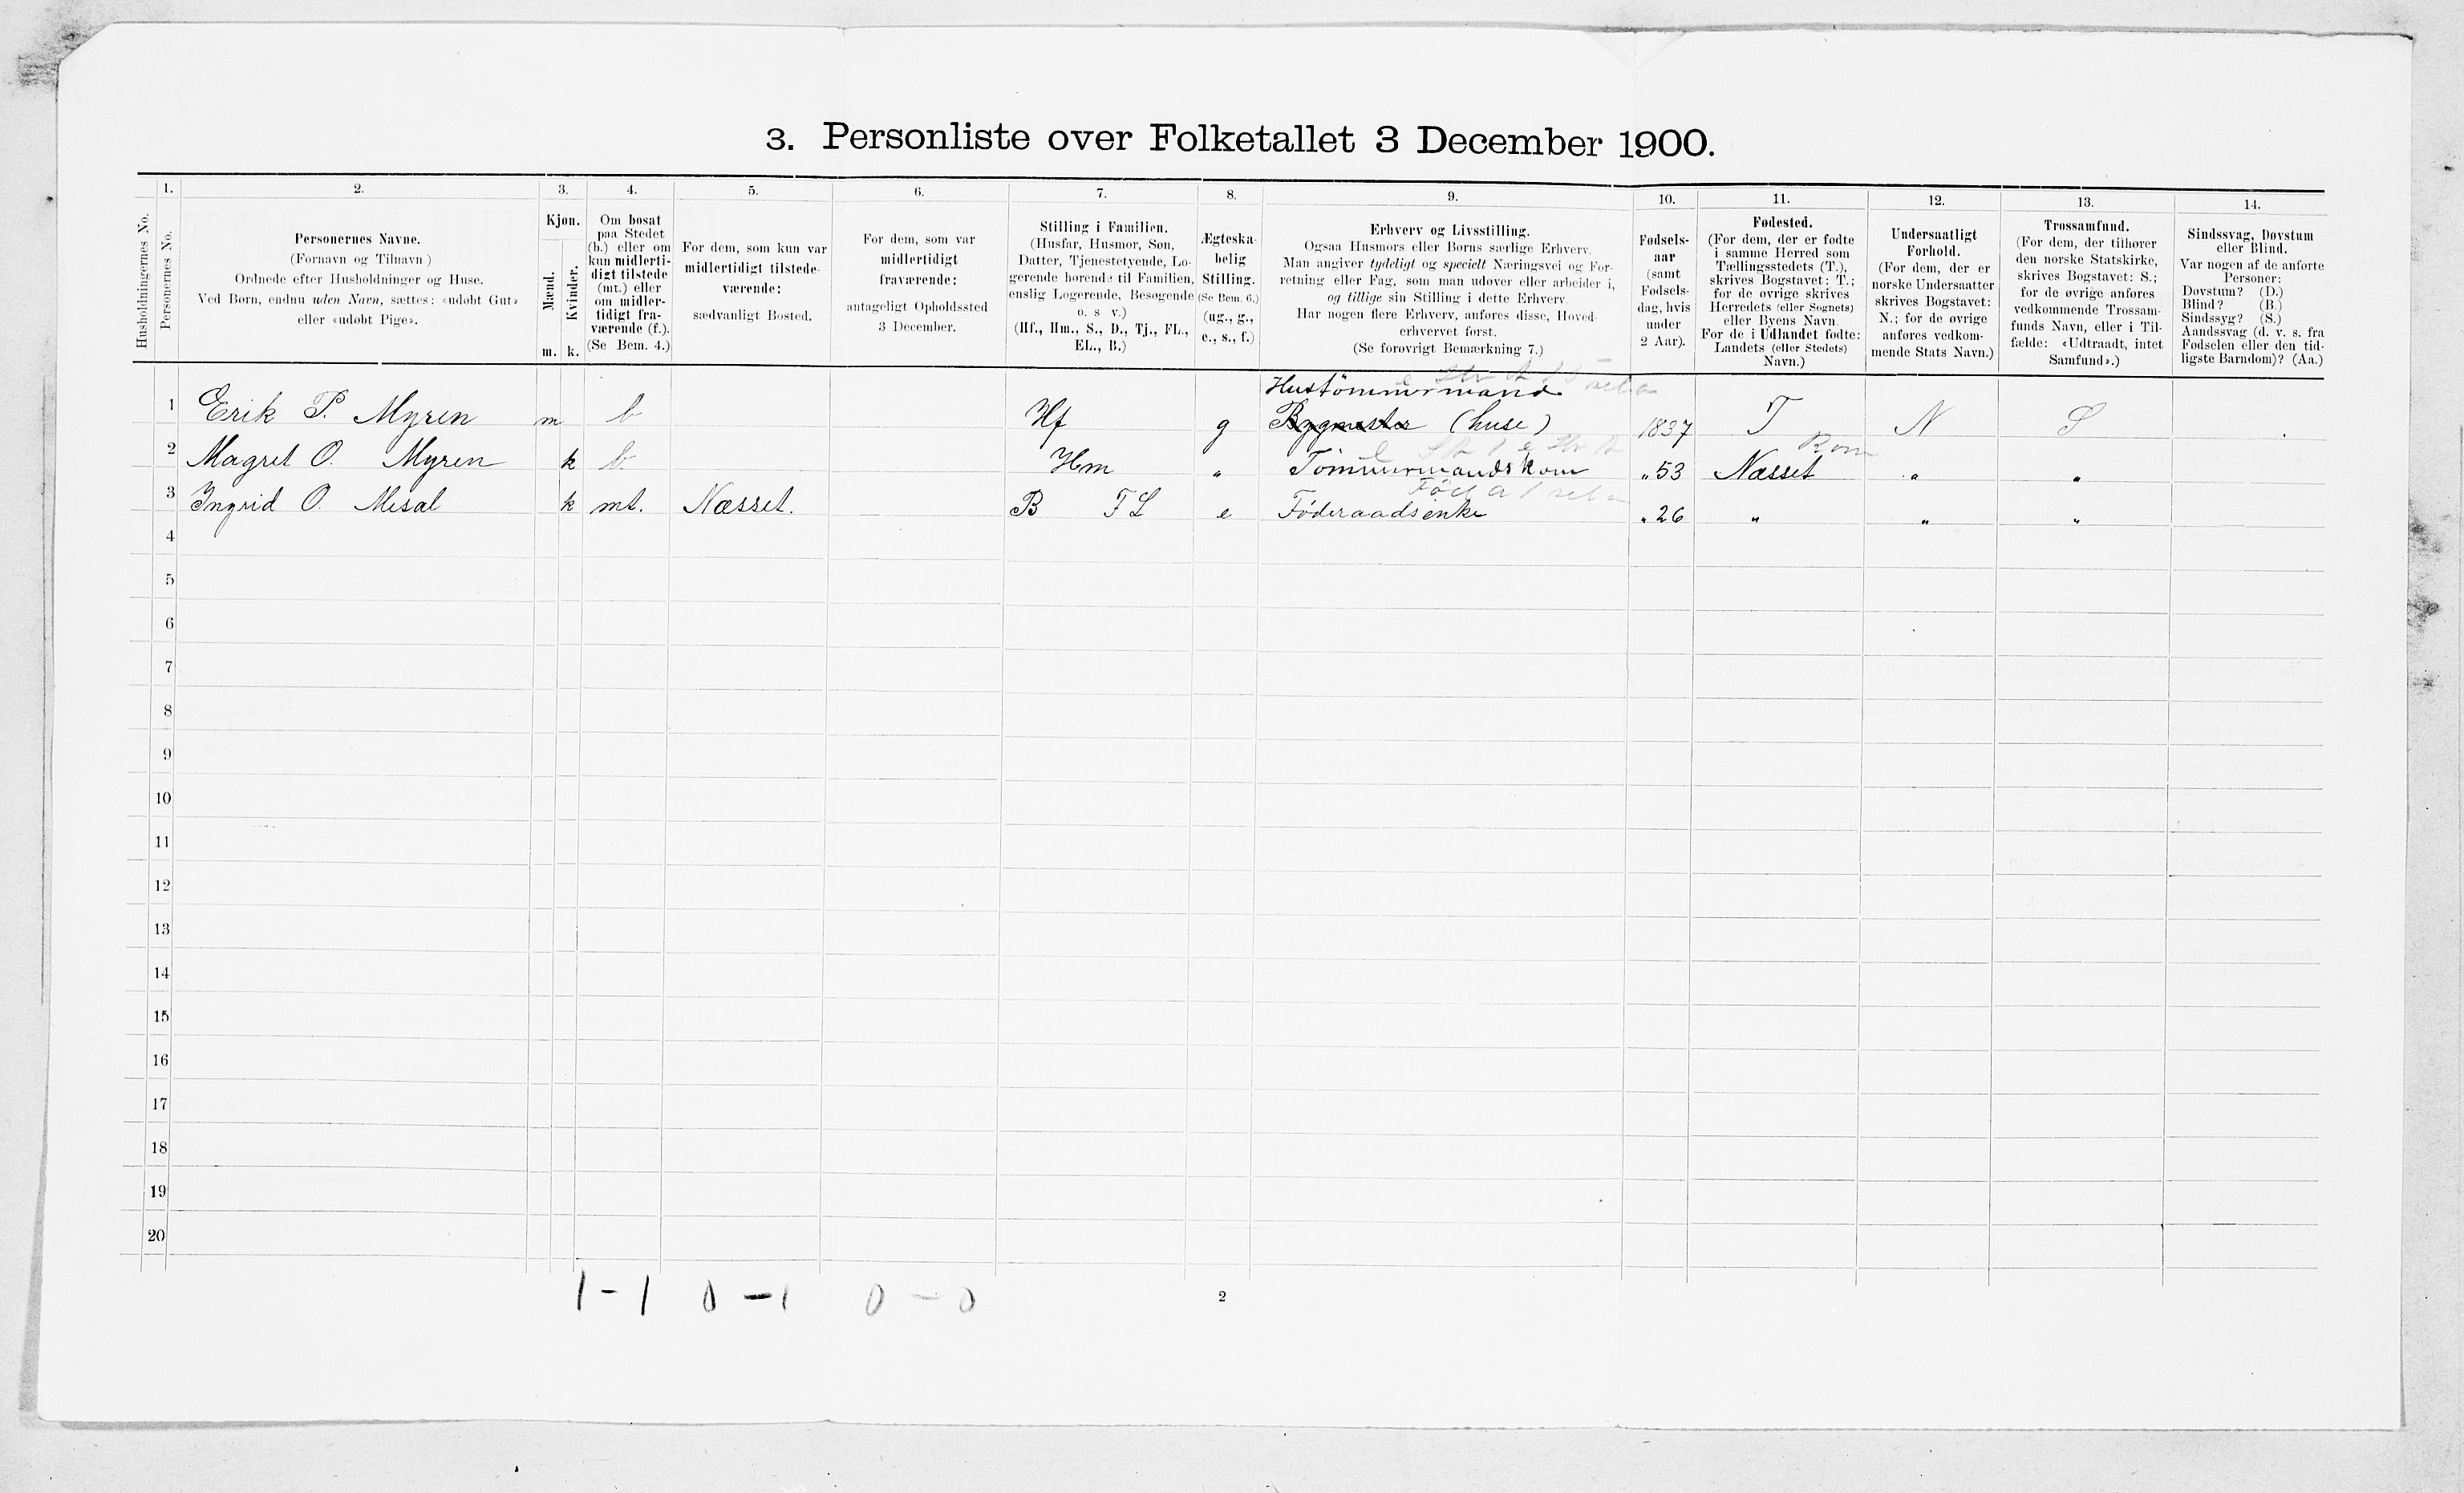 3. Personliste over Folketallet 3 December 1900.
Husholdningernes No.
1.
Personernes No.
2.
Personernes Navne.
(Fornavn og Tilnavn)
Ordnede efter Husholdninger og Huse.
Ved Børn, endnu uden Navn, sættes: «udøbt Gut»
eller «udøbt Pige».
3.
Kjøn.
Mænd.
Kvinder.
m. k.
4.
Om bosat
paa Stedet
(b.) eller om
kun midlerti-
digt tilstede
(mt.) eller
om midler-
tidigt fra-
værende (f.).
(Se Bem. 4.)
5.
For dem, som kun var
midlertidigt tilstede-
værende:
sædvanligt Bosted.
6.
For dem, som var
midlertidigt
fraværende:
antageligt Opholdssted
3 December.
7.
Stilling i Familien.
(Husfar, Husmor, Søn,
Datter, Tjenestetyende, Lo-
gerende hørende til Familien,
enslig Logerende, Besøgende
o. s v.)
(Hf., Hm., S., D., Tj., FL.,
EL., B.)
8.
Ægteska-
belig
Stilling.
(Se Bem. 6.)
(ug., g.,
e., s., f.)
9.
Erhverv og Livsstilling.
Ogsaa Husmors eller Børns særlige Erhverv.
Man angiver tydeligt og specielt Næringsvei og For-
retning eller Fag, som man udøver eller arbeider i,
og tillige sin Stilling i dette Erhverv.
Har nogen flere Erhverv, anføres disse, Hoved-
erhvervet først.
(Se forøvrigt Bemærkning 7.)
10.
Fødsels-
aar
(samt
Fødsels-
dag, hvis
under
2 Aar).
11.
Fødested.
(For dem, der er fødte
i samme Herred som
Tællingsstedets (T.),
skrives Bogstavet: T.;
for de øvrige skrives
Herredets (eller Sognets)
eller Byens Navn.
For de i Udlandet fødte:
Landets (eller Stedets)
Navn.)
12.
Undersaatligt
Forhold.
(For dem, der er
norske Undersaatter
skrives Bogstavet:
N.; for de øvrige
anføres vedkom-
mende Stats Navn.)
13.
Trossamfund.
(For dem, der tilhører
den norske Statskirke,
skrives Bogstavet: S.;
for de øvrige anføres
vedkommende Trossam-
funds Navn, eller i Til-
fælde: «Udtraadt, intet
Samfund».)
14.
Sindssvag, Døvstum
eller Blind.
Var nogen af de anførte
Personer:
Døvstum? (D.)
Blind? (B.)
Sindssyg? (S.)
Aandssvag (d. v. s. fra
Fødselen eller den tid-
ligste Barndom)? (Aa.)
Hustömmermand
1 Erik P. Myren m b Hf g Bygmester (huse) 1837 T N S
Rom
2 Magret O. Myren k b Hm " Tömmermandskom "53 Næsset " "
3 Ingrid O. Mesal k mt. Næsset. B FL e Föderaadsenke "26 " " "
4
5
6
7
8
9
10
11
12
13
14
15
16
17
18
19
20
1-1 0-1 0-0
2